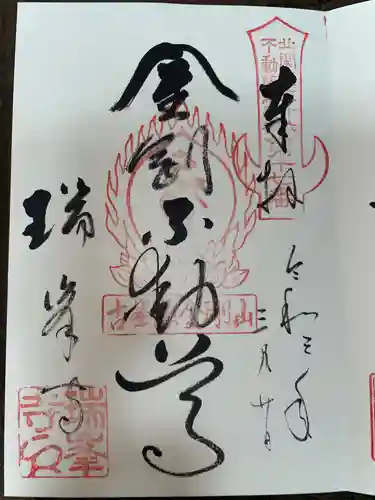 奉拝
令和三年
三月廿日
金剛不動尊
瑞峯寺
古峯原金剛山
瑞峯
寺印